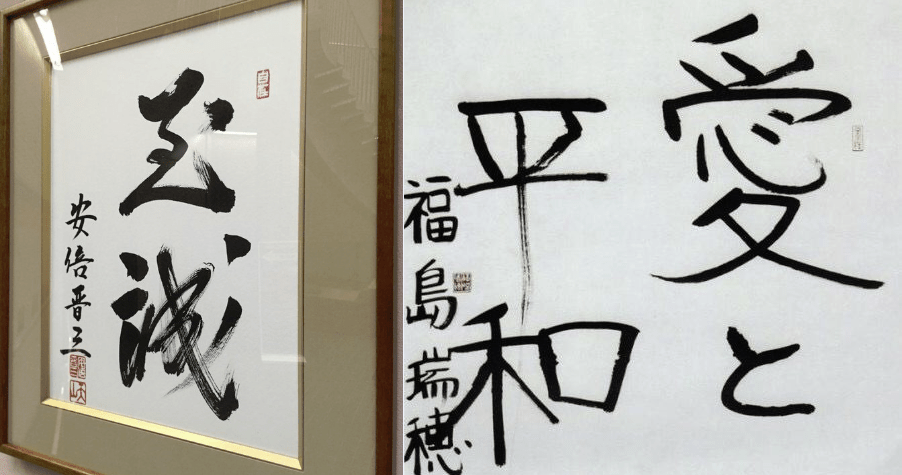 至誠
安倍晋三
愛と
平和
福島瑞穂